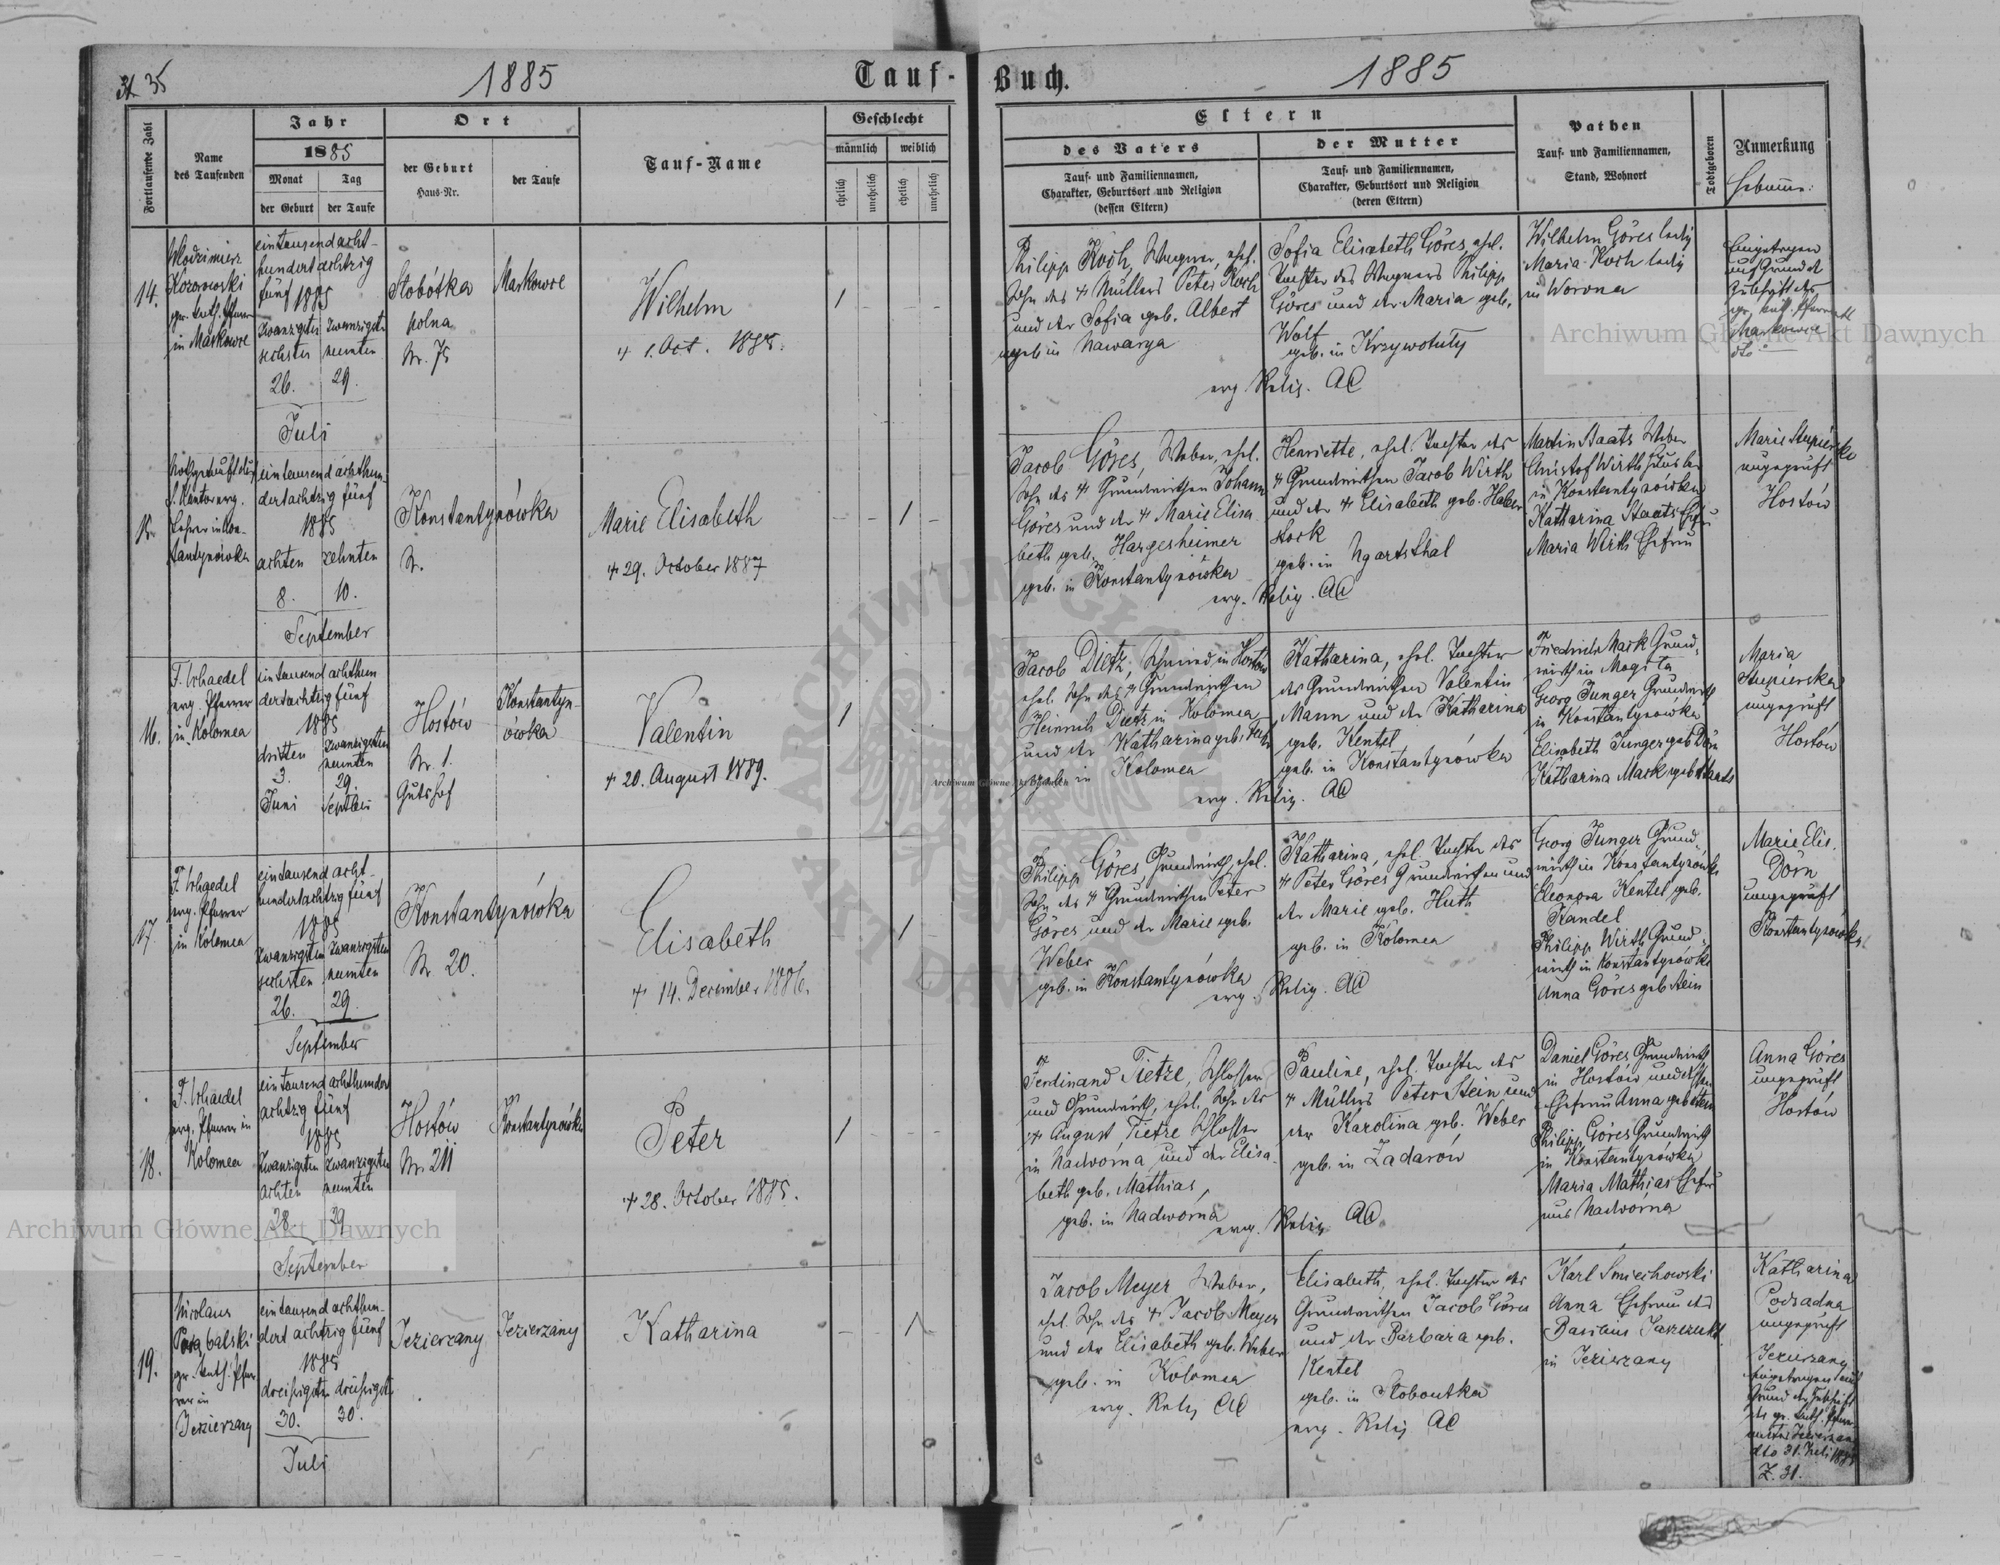 35
1885
Tauf-
Buch.
1885
Fortlaufende Zahl
Name
des Taufenden
Jahr
1885
Monat
Tag
der Geburt
der Taufe
Ort
der Geburt
Haus-Nr.
der Taufe
Tauf-Name
Geschlecht
männlich
weiblich
ehelich
unehelich
ehelich
unehelich
Eltern
des Vaters
Tauf- und Familiennamen,
Charakter, Geburtsort und Religion
(dessen Eltern)
der Mutter
Tauf- und Familiennamen,
Charakter, Geburtsort und Religion
(deren Eltern)
Pathen
Tauf- und Familiennamen,
Stand, Wohnort
Todtgeboren
Anmerkung
14.
Wlodzimierz
Kozorowski
gr. kath. Pfarrer
in Markowce
eintausend acht-
hundert achtzig
fünf 1885
zwanzigsten
sechsten
26.
zwanzigsten
neunten
29.
Juli
Slobótka
polna
Nr. 75
Markowce
Wilhelm
+ 1. Oct. 1885.
1
Philipp Koch, Wagner, ehel.
Sohn des + Müllers Peter Koch
und der Sofia geb. Albert
geb in Nawarya
Sofia Elisabeth Göres, ehel.
Tochter des Wagners Philipp
Göres und der Maria geb.
Wolf
geb. in Krzywotuły
evg. Relig. AC
Wilhelm Göres ledig
Maria Koch ledig
in Worona
Eingetragen
auf Grund d
gr. kath. Pfarramt
Markowce
15.
Lehrer in Kon-
stantynówka
eintausend achthun-
dertachtzig fünf
1885
achten
8.
zehnten
10.
September
Konstantynówka
Nr.
Marie Elisabeth
+ 29. October 1887
1
Jacob Göres, Weber, ehel.
Sohn des + Grundwirthen Johann
Göres und der + Marie Elisa-
beth geb. Hargesheimer
geb. in Konstantynówka
Henriette, ehel. Tochter des
+ Grundwirthen Jacob Wirth
und der + Elisabeth geb. Haber
stock
geb. in Ugartsthal
evg. Relig. AC
Martin Staats Weber
Christof Wirth
in Konstantynówka
Katharina Staats Ehefrau
Maria Wirth Ehefrau
Marie Stupierska
ungeprüft
Hostów
16.
evg. Pfarrer
in Kolomea
eintausend achthun
dertachtzig fünf
1885
dritten
3.
Juni
zwanzigsten
neunten
29.
Septber
Hostów
Nr. 1.
Gutshof
Konstantyn-
ówka
Valentin
+ 20. August 1889.
1
Jacob Dietz, Schmied in Hostów
ehel. Sohn des + Grundwirthen
Heinrich Dietz in Kolomea
und der Katharina geb.
geb. in Kolomea
Katharina, ehel. Tochter
des Grundwirthen Valentin
Mann und der Katharina
geb. Kentel
geb. in Konstantynówka
evg. Relig. AC
Friedrich Mark Grund-
wirth in Mogiła
Georg Junger Grundwirth
in Konstantynówka
Elisabeth Junger geb Dörn
Katharina Mark geb Staats
Maria
Stupierska
ungeprüft
Hostów
17.
evg. Pfarrer
in Kolomea
eintausend acht-
hundertachtzig fünf
1885
zwanzigsten
sechsten
26.
zwanzigsten
neunten
29.
September
Konstantynówka
Nr. 20.
Elisabeth
+ 14. December 1886.
1
Philipp Göres, Grundwirth, ehel.
Sohn des + Grundwirthen Peter
Göres und der Marie geb.
Weber
geb. in Konstantynówka
Katharina, ehel. Tochter des
+ Peter Göres Grundwirthen und
der Marie geb. Huth
geb. in Kolomea
evg. Relig. AC
Georg Junger Grund-
wirth in Konstantynówka
Eleonora Kentel geb.
Kandel
Philipp Wirth Grund-
wirth in Konstantynówka
Anna Göres geb Stein
Marie Elis.
Dörn
ungeprüft
Konstantynówka
18.
evg. Pfarrer in
Kolomea
eintausend achthundert
achtzig fünf
1885
zwanzigsten
achten
28.
zwanzigsten
neunten
29
September
Hostów
Nr. 211
Konstantynówka
Peter
+ 28. October 1885.
1
Ferdinand Tietze, Schlosser
und Grundwirth, ehel. Sohn des
+ August Tietze Schlosser
in Nadworna und der Elisa-
beth geb. Mathias,
geb. in Nadwórna
Pauline, ehel. Tochter des
+ Müllers Peter Stein und
der Karolina geb. Weber
geb. in Zadarów
evg. Relig. AC
Daniel Göres Grundwirth
in Hostów und dessen
Ehefrau Anna geb Stein
Philipp Göres Grundwirth
in Konstantynówka
Maria Mathias Ehefr
aus Nadwórna
Anna Göres
ungeprüft
Hostów
19.
Nicolaus
gr. kath. Pfar
rer in
Jezierzany
eintausend achthun-
dert achtzig fünf
1885
dreißigsten
30.
dreißigsten
30.
Juli
Jezierzany
Jezierzany
Katharina
1
Jacob Meyer Weber,
ehel. Sohn des + Jacob Meyer
und der Elisabeth geb. Weber
geb. in Kolomea
evg. Relig AC
Elisabeth, ehel. Tochter des
Grundwirthen Jacob Göres
und der Barbara geb.
Kentel
geb. in Sloboutka
evg. Relig AC
Karl Smiechowski
Anna Ehefrau des
in Jezierzany
Katharina
Podsadna
ungeprüft
Jezierzany
eingetragen auf
Grund der
des gr. kath. Pfarr-
amtes Jezierzany
dto 31. Juli 1885
Z. 31.
Archiwum Główne Akt Dawnych
Archiwum Główne Akt Dawnych
Archiwum Główne Akt Dawnych
ARCHIWUM GŁÓWNE AKT DAWNYCH